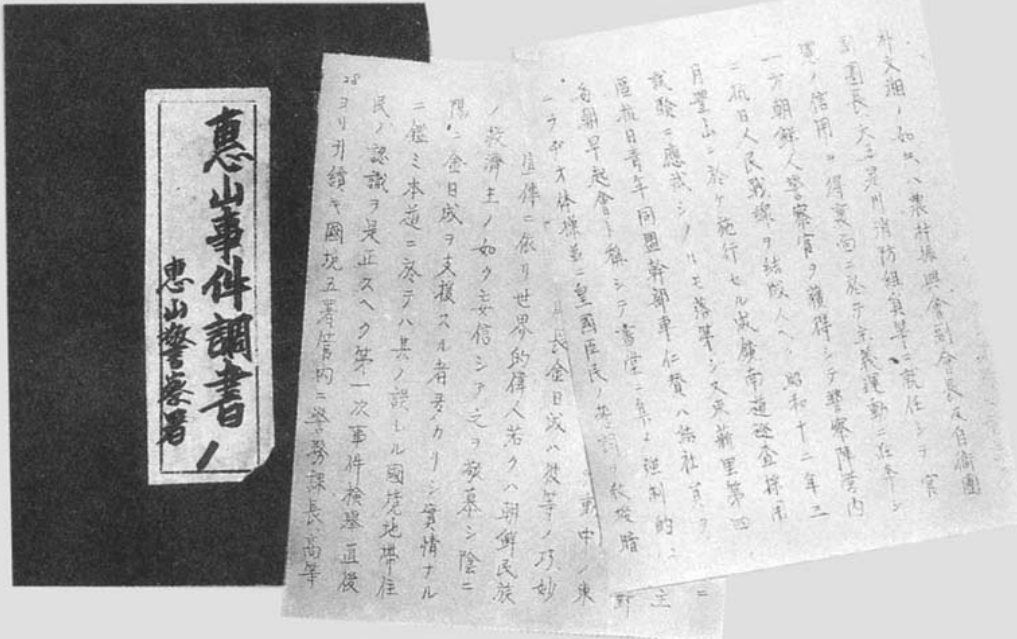 惠山事件調書ノ
惠山警察署
朴文湘ノ如キハ農村振興會副會長及自衛團
副團長、消防組員等ニ就任シテ官
憲ノ信用ヲ得裏面ニ於テ主義運動ニ狂奔シ
一方朝鮮人警察官ヲ獲得シテ警察陣営内
ニ抗日人民戦線ヲ結成スヘク昭和十二年三
月豊山ニ於ケ施行セル咸鏡南道巡査採用
試験ニ應試シタルモ落第シ又東新里第四
區抗日青年同盟幹部車仁賛ハ結社員ヲ
毎朝早起會ト稱シテ書堂ニ集メ強制的ニ
ニラヂオ体操並ニ皇國臣民ノ誓詞
戦中ノ東
長金日成ハ彼等ノ巧妙
宣傳ニ依リ世界的偉人若クハ朝鮮民族
ノ救濟主ノ如ク妄信シアリ之ヲ敬慕シ陰ニ
陽ニ金日成ヲ支援スル者多カリシ實情ナル
ニ鑑ミ本道ニ於テハ其ノ誤レル國境地帯住
民ノ認識ヲ是正スヘク第一次事件検擧直後
ヨリ引續キ國境五署管内ニ警務課長、高等
28